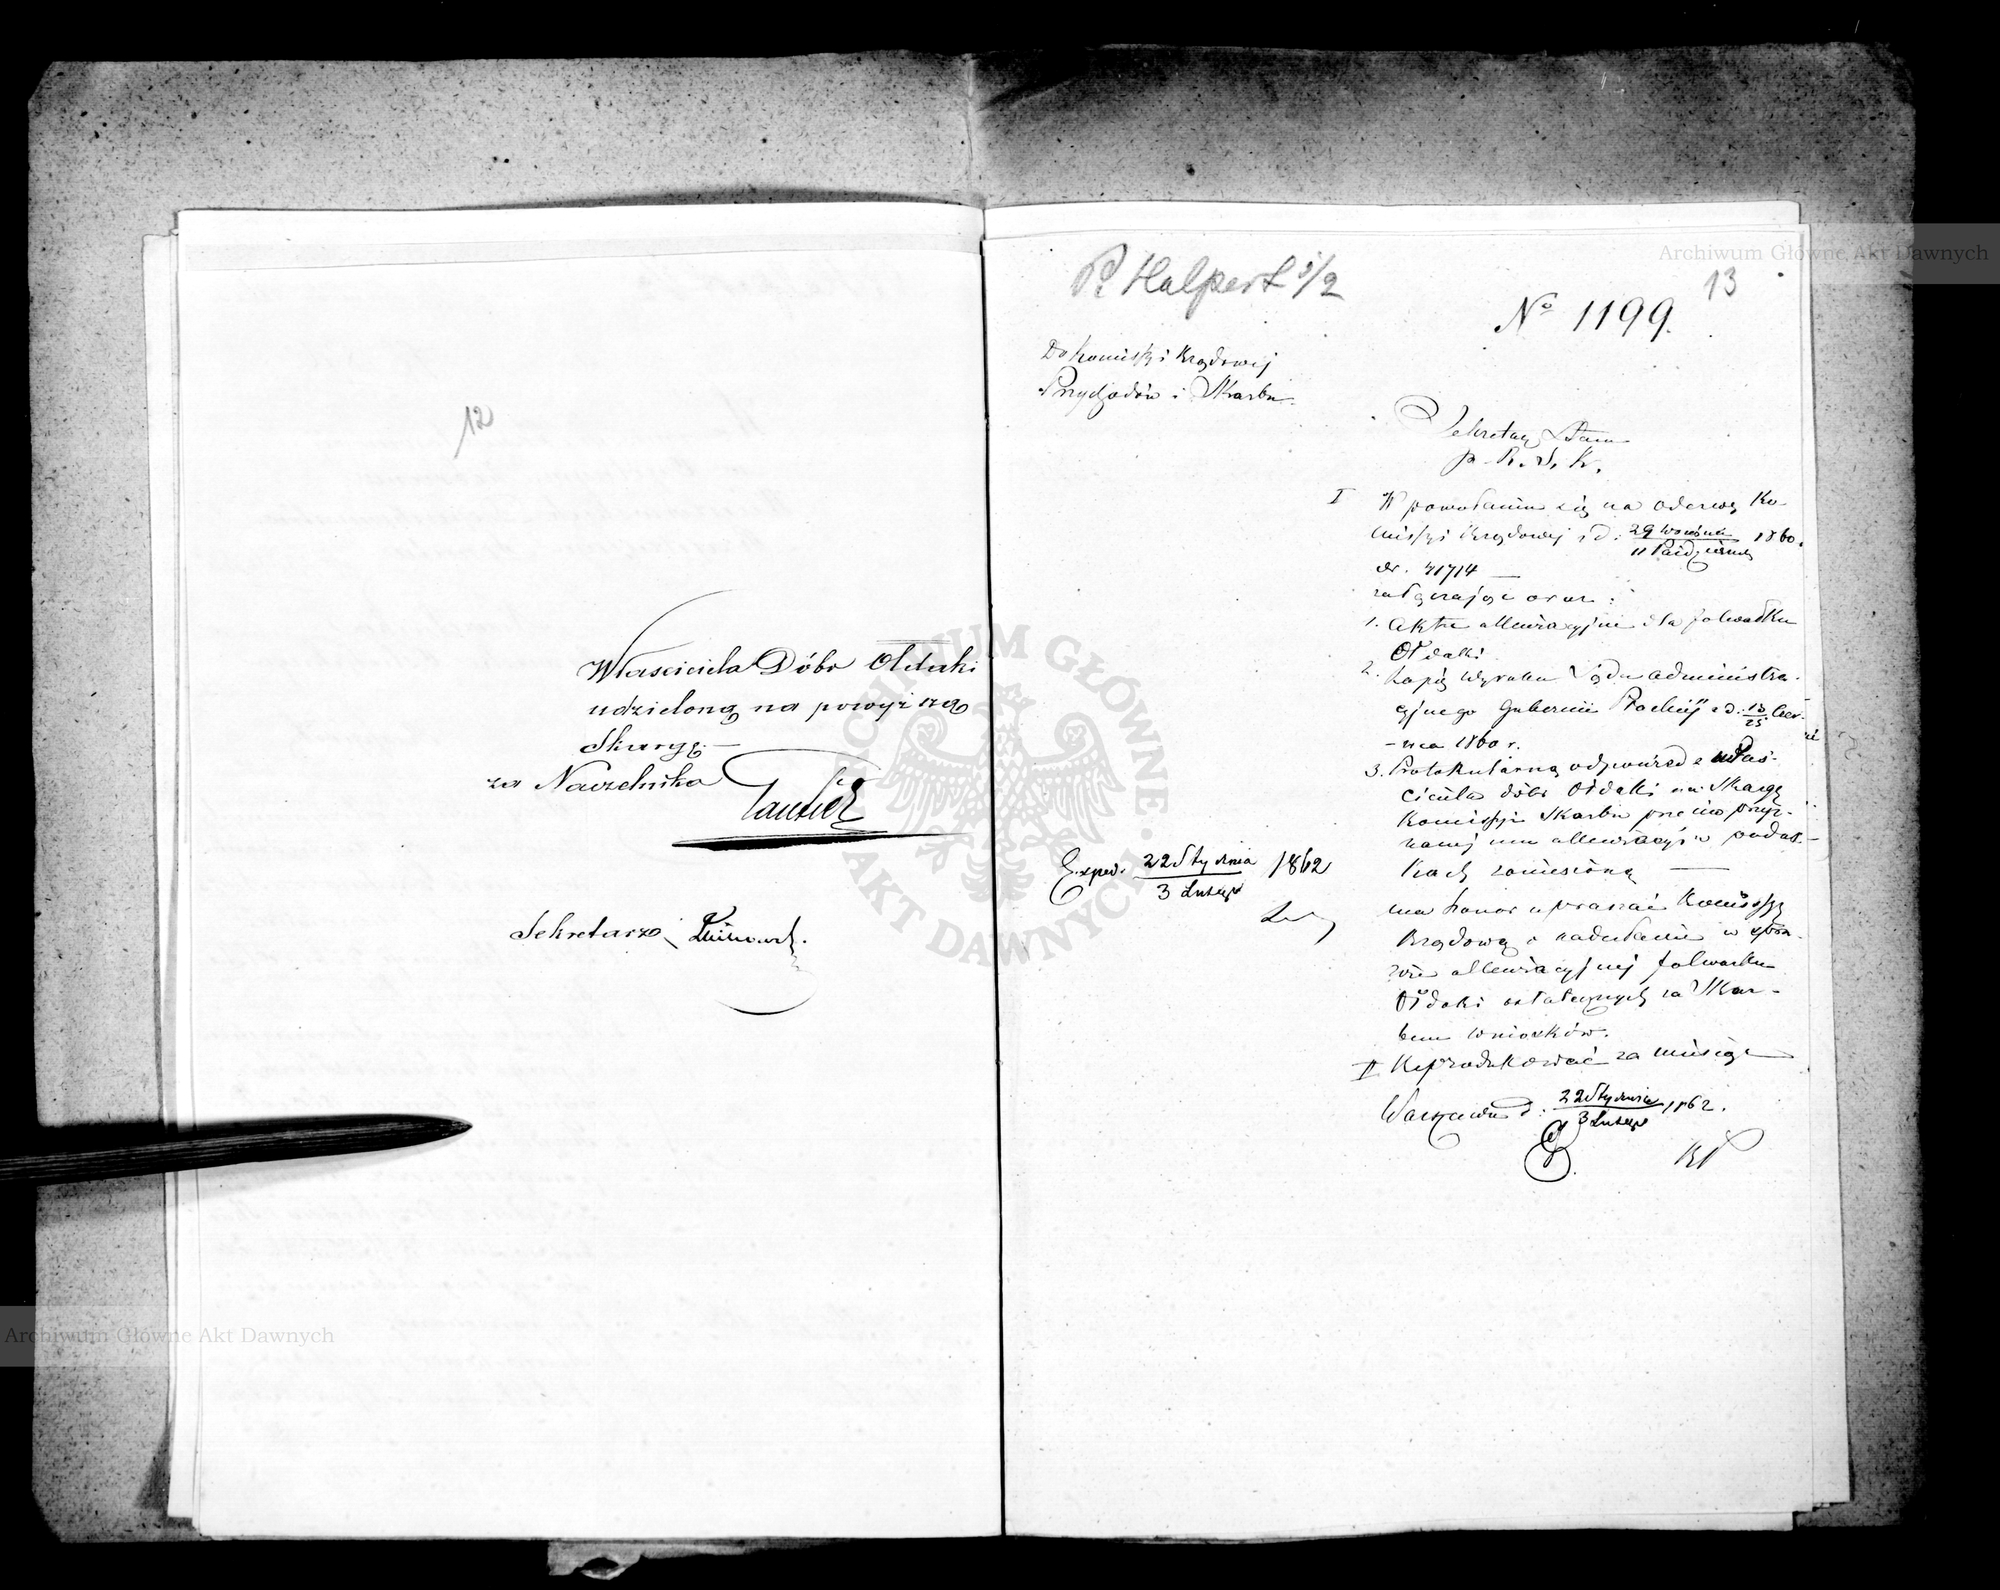 12
Właściciela Dóbr Ołdaki
udzieloną na powyższą
Skargę.—
za Naczelnika
Sekretarz
P. Halpert 5/2
13
Nº 1199.
Do Kommissyi Rządowej
Przychodów i Skarbu.
Sekretarz Stanu
p. R. S. K.
I W powołaniu się na odezwę Ko-
missyi Rządowej z d. 29 Września / 11 Październ. 1860.
Nr. 71714 —
załączając oraz:
1. Akta allewiacyjne dla folwarku
Ołdaki
2. Kopię wyroku Sądu administra-
cyjnego Gubernii Płockiej z d. 13/25 Czer-
-wca 1860 r.
3. Protokularną odpowiedź właś-
ciciela dóbr Ołdaki na Skargę
Kommissyi Skarbu przeciw przyz-
nanej mu allewiacyi w podat-
kach zaniesioną —
ma honor upraszać Kommissyę
Rządową o nadesłanie w spra-
wie allewiacyjnej folwarku
Ołdaki ostatecznych za Skar-
bem wniosków.
II Reprodukować za miesiąc
Warszawa d. 22 Stycznia / 3 Lutego 1862.
Exped. 22 Stycznia / 3 Lutego 1862
Archiwum Główne Akt Dawnych
Archiwum Główne Akt Dawnych
ARCHIWUM GŁÓWNE AKT DAWNYCH